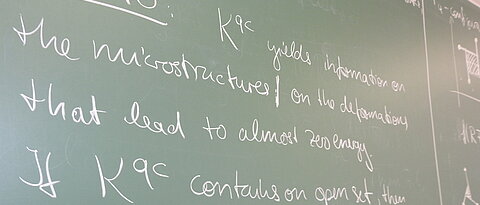 K^qc yields information on
the microstructures / on the deformations
that lead to almost zero energy.
If K^qc contains on open set, then